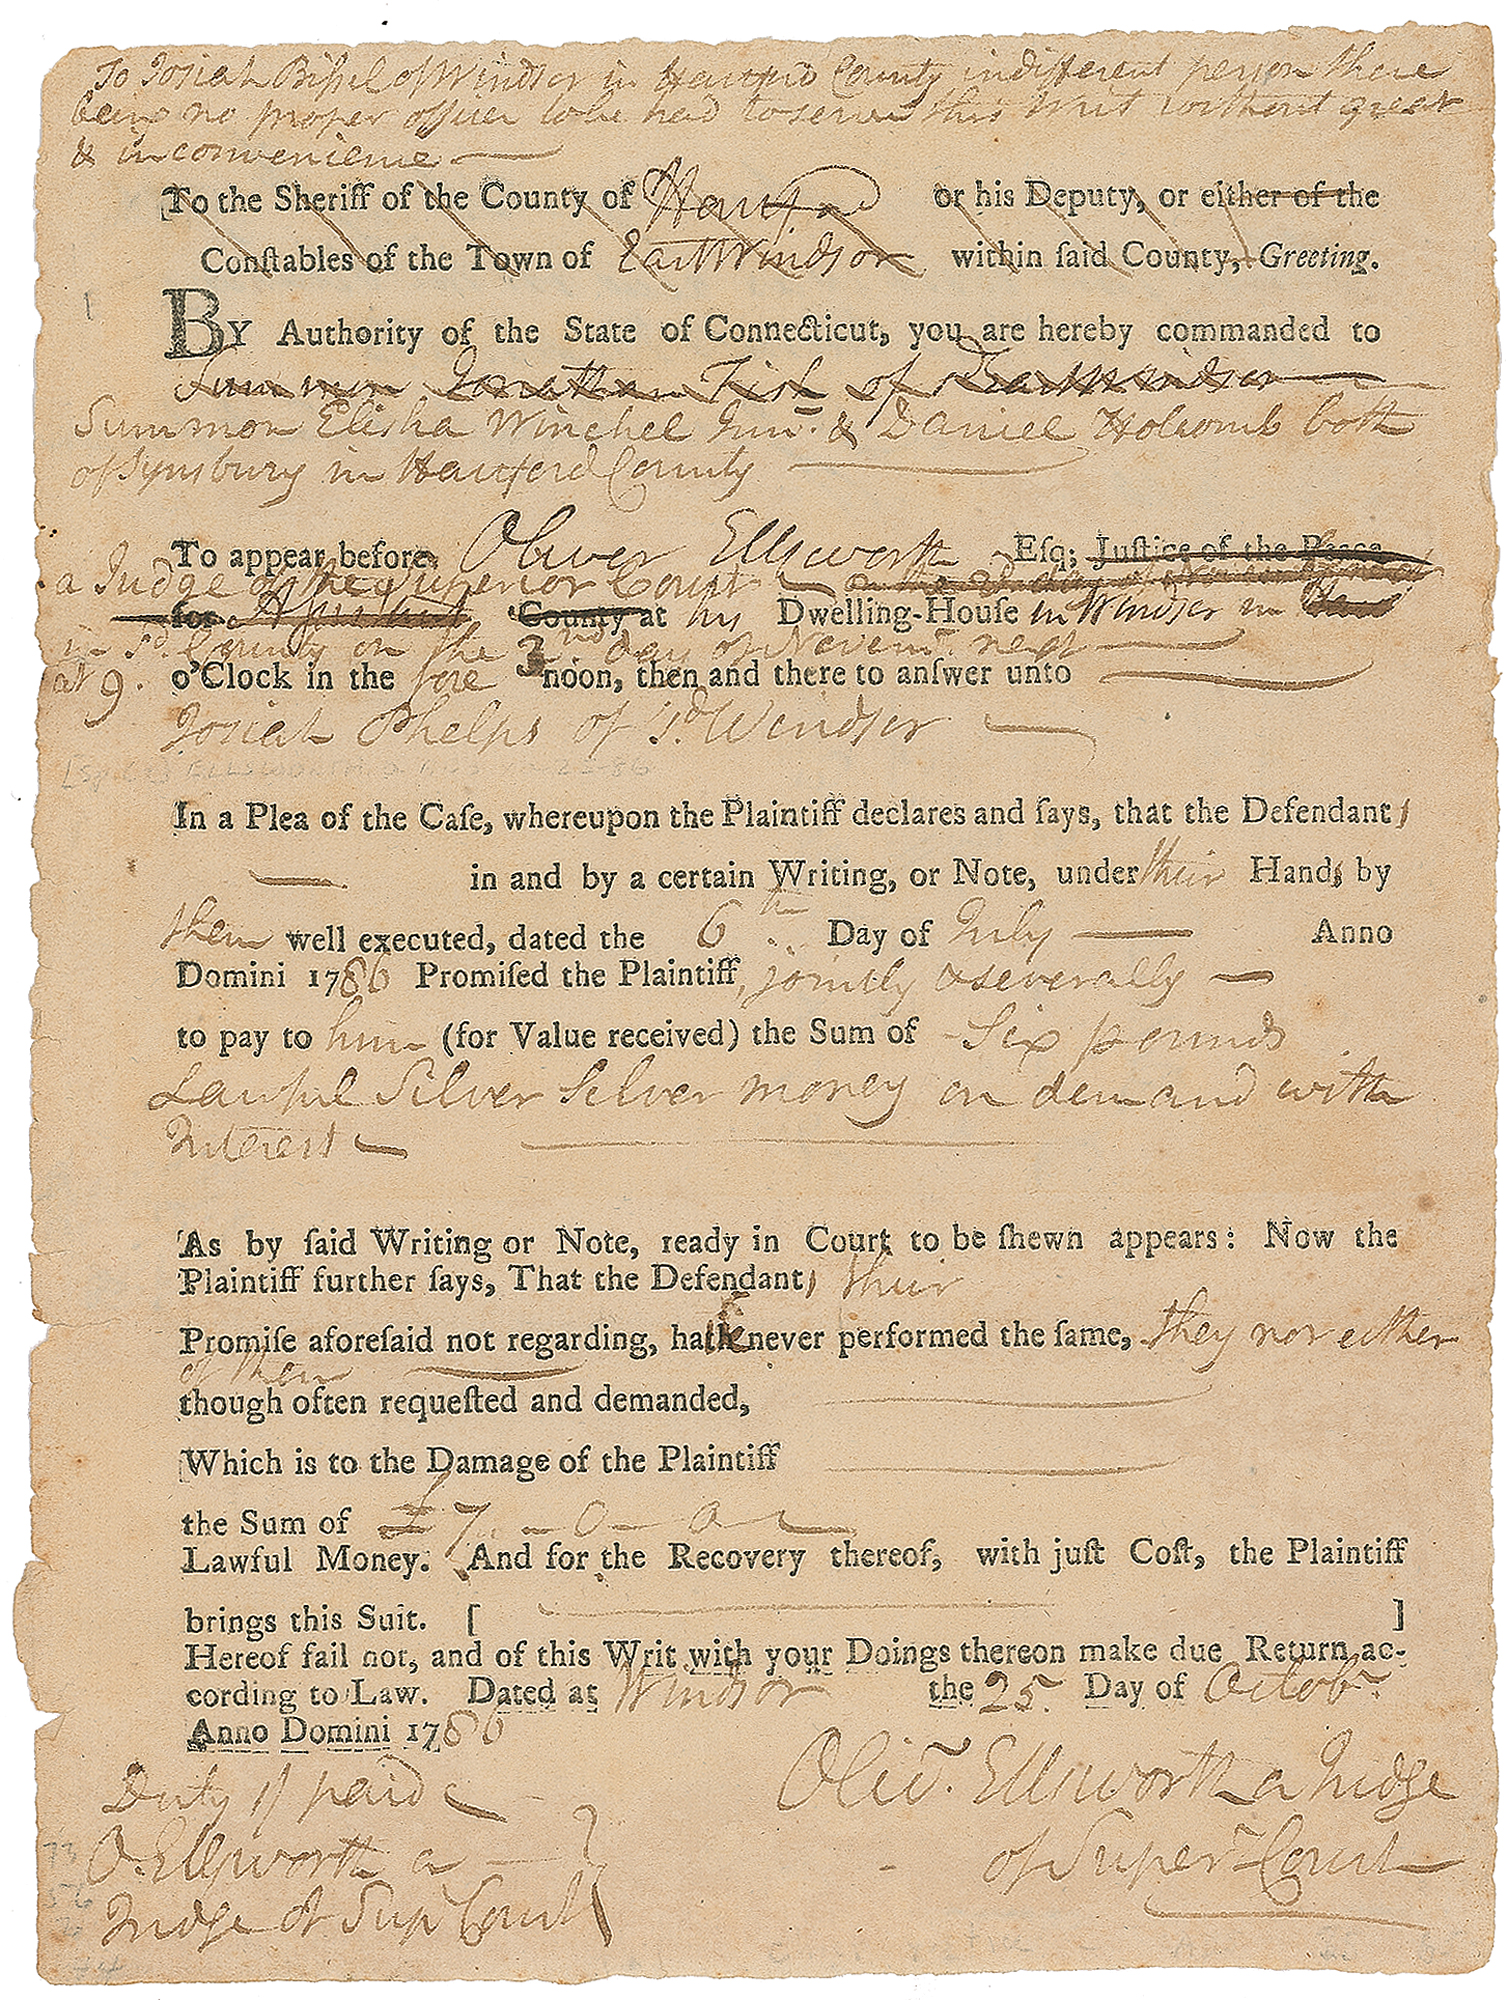 To Josiah Bissel of Windsor in Hartford County indifferent person there
being no proper officer to be had to serve this Writ without great
& inconvenience
To the Sheriff of the County of Hartford or his Deputy, or either of the
Conſtables of the Town of East Windsor within ſaid County, Greeting.
BY Authority of the State of Connecticut, you are hereby commanded to
Summon Jonathan Fish of East Windsor
Summon Elisha Winchel Junr. & Daniel Holcomb both
of Symsbury in Hartford County
To appear before Oliver Ellsworth Eſq; Juſtice of the Peace
a Judge of the Superior Court
for County at his Dwelling-Houſe in Windsor in
in sd. County on the 3 nd day of Novemr. next
at 9. o'Clock in the fore noon, then and there to anſwer unto
Josiah Phelps of sd. Windsor
In a Plea of the Caſe, whereupon the Plaintiff declares and ſays, that the Defendants
in and by a certain Writing, or Note, under their Hands by
them well executed, dated the 6th Day of July Anno
Domini 1786 Promiſed the Plaintiff, jointly & severally
to pay to him (for Value received) the Sum of Six pounds
Lawful Silver Silver money on demand with
Interest
As by ſaid Writing or Note, ready in Court to be ſhewn appears: Now the
Plaintiff further ſays, That the Defendants their
Promiſe aforeſaid not regarding, have never performed the ſame, they nor either
of them
though often requeſted and demanded,
Which is to the Damage of the Plaintiff
the Sum of £7 - 0 - 0
Lawful Money. And for the Recovery thereof, with juſt Coſt, the Plaintiff
brings this Suit. [ ]
Hereof fail not, and of this Writ with your Doings thereon make due Return ac-
cording to Law. Dated at Windsor the 25 Day of Octobr.
Anno Domini 1786
Duty 1/ paid
Olivr. Ellsworth a Judge
O. Ellsworth a
of Superr Court
Judge of Supr Court